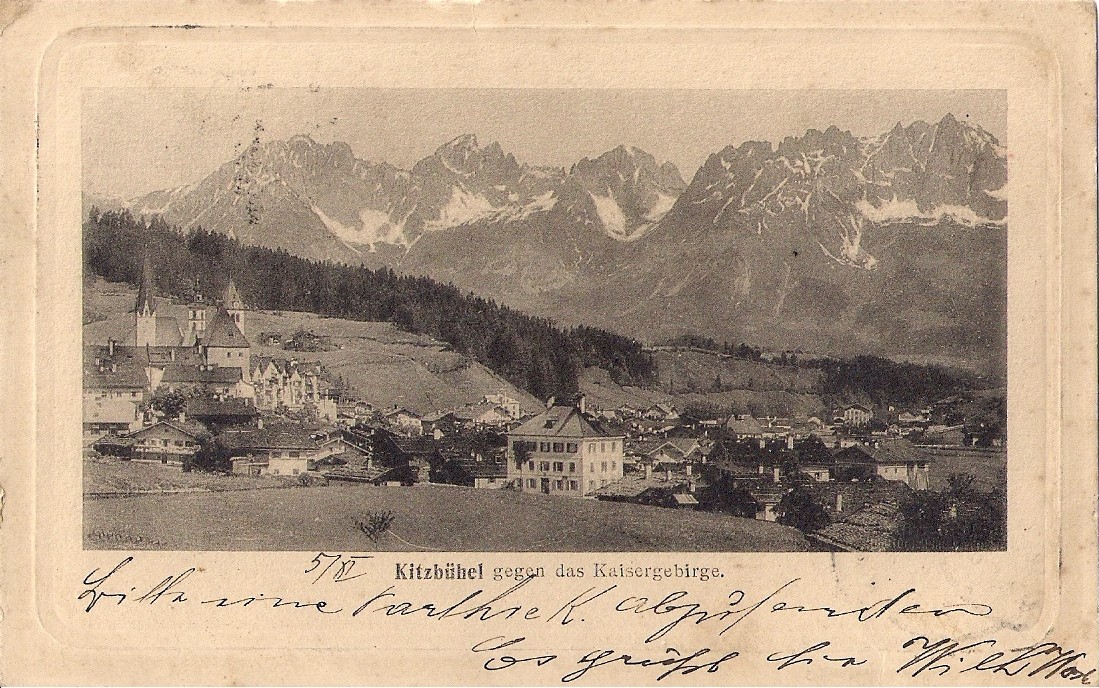 5/XI
Kitzbühel gegen das Kaisergebirge.
Bitte eine Parthie K. abzusenden
Es grüßt Sie Wilh